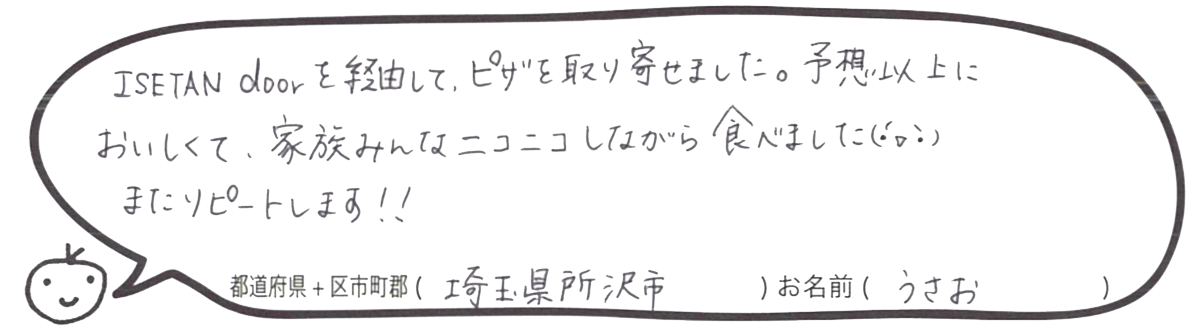 ISETAN doorを経由して、ピザを取り寄せました。予想以上に
おいしくて、家族みんなニコニコしながら食べました(･▽･)
またリピートします!!
都道府県+区市町郡( 埼玉県所沢市 ) お名前( うさお )